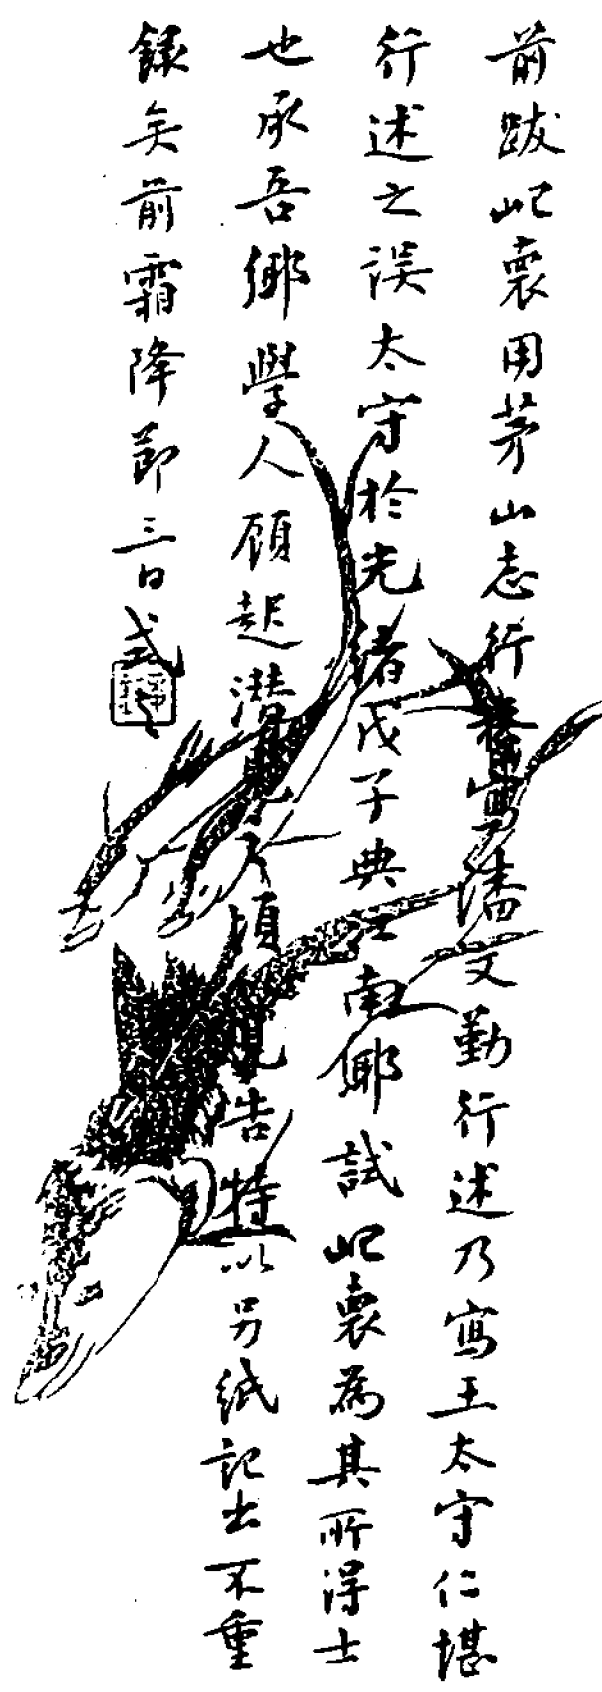 前跋屺裏用茅山志行寫潘文勤行述乃寫王太守仁堪
行述之误太守於光緒戊子典江南鄉試屺裏為其所得士
也承吾鄉學人顧起潛頃見告特以另紙記出不重
録矣前霜降節三日式之